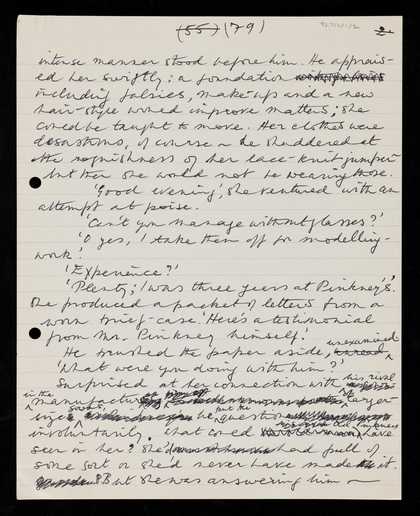 (55) (79)
2
intense manner stood before him. He apprais-
ed her swiftly: a foundation
including falsies, make-up and a new
hair-style would improve matters; she
could be taught to move. Her clothes were
disastrous, of course ~ he shuddered at
the roguishness of her lace-knit jumper ~
but then she would not be wearing those.
'Good evening', she ventured with an
attempt at poise.
'Can't you manage without glasses?'
'O yes, I take them off for modelling-
work.'
'Experience?'
'Plenty; I was three years at Pinkney's.'
She produced a packet of letters from a
worn brief-case. 'Here's a testimonial
from Mr. Pinkney himself.'
He brushed the paper aside, unexamined
'What were you doing with him?'
Surprised at her connection with his rival
in the manufacture of larger-
he put the question
involuntarily. What could Old Pinkney have
seen in her? She'd had pull of
some sort or she'd never have made it.
But she was answering him ~